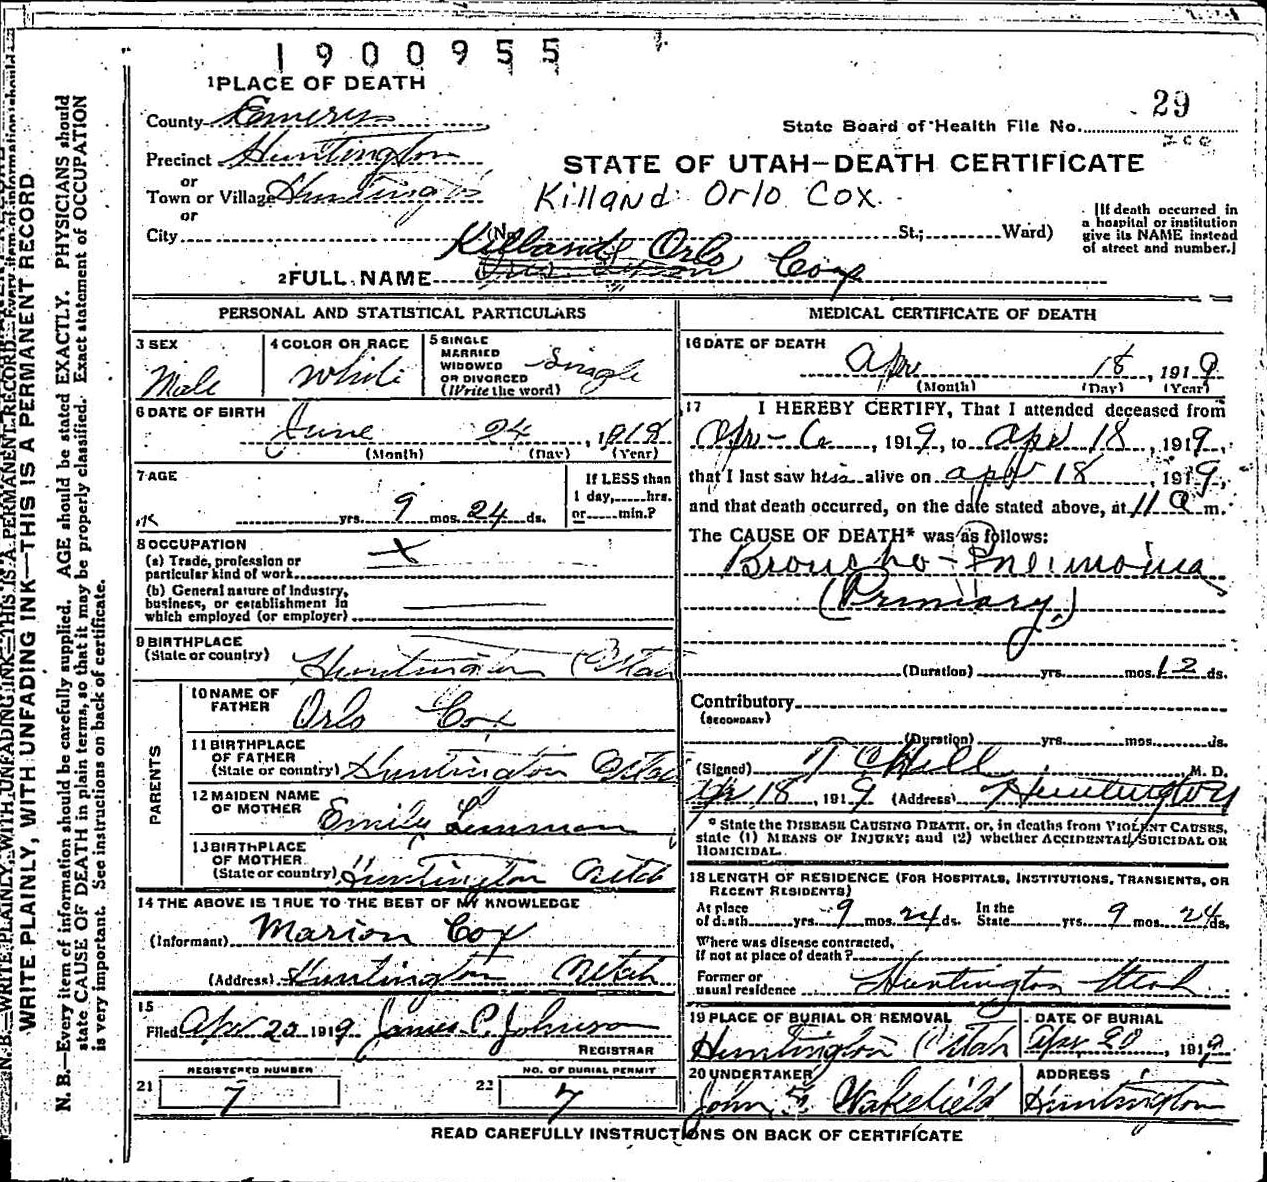 1900955
1 PLACE OF DEATH
29
County Emery
State Board of Health File No.
Precinct Huntington
STATE OF UTAH—DEATH CERTIFICATE
or
Town or Village Huntington
Killand Orlo Cox
or
City (No. St.; Ward)
[If death occurred in
a hospital or institution
give its NAME instead
of street and number.]
Killand Orlo
2 FULL NAME Cox
PERSONAL AND STATISTICAL PARTICULARS
3 SEX
Male
4 COLOR OR RACE
White
5 SINGLE
MARRIED
WIDOWED
OR DIVORCED
(Write the word)
Single
6 DATE OF BIRTH
June 24, 1918
(Month) (Day) (Year)
7 AGE
yrs. 9 mos. 24 ds.
If LESS than
1 day, hrs.
or min.?
8 OCCUPATION
(a) Trade, profession or
particular kind of work
(b) General nature of Industry,
business, or establishment in
which employed (or employer)
9 BIRTHPLACE
(State or country) Huntington Utah
PARENTS
10 NAME OF
FATHER Orlo Cox
11 BIRTHPLACE
OF FATHER
(State or country) Huntington Utah
12 MAIDEN NAME
OF MOTHER Emily
13 BIRTHPLACE
OF MOTHER
(State or country) Huntington Utah
14 THE ABOVE IS TRUE TO THE BEST OF MY KNOWLEDGE
(Informant) Marion Cox
(Address) Huntington Utah
15
Filed Apr 20 1919 James P. Johnson
REGISTRAR
21 REGISTERED NUMBER
7
22 NO. OF BURIAL PERMIT
7
MEDICAL CERTIFICATE OF DEATH
16 DATE OF DEATH
Apr 18, 1919
(Month) (Day) (Year)
17 I HEREBY CERTIFY, That I attended deceased from
Apr - 6, 1919, to Apr 18, 1919,
that I last saw his alive on apr 18, 1919,
and that death occurred, on the date stated above, at 11 a m.
The CAUSE OF DEATH* was as follows:
Broncho-Pneumonia
(Primary)
(Duration) yrs. mos. 12 ds.
Contributory
(SECONDARY)
(Duration) yrs. mos. ds.
(Signed) T C Hill M. D.
Apr 18, 1919 (Address) Huntington
* State the DISEASE CAUSING DEATH, or, in deaths from VIOLENT CAUSES,
state (1) MEANS OF INJURY; and (2) whether ACCIDENTAL, SUICIDAL OR
HOMICIDAL.
18 LENGTH OF RESIDENCE (FOR HOSPITALS, INSTITUTIONS, TRANSIENTS, OR
RECENT RESIDENTS)
At place
of death yrs. 9 mos. 24 ds. In the
State yrs. 9 mos. 24 ds.
Where was disease contracted,
if not at place of death?
Former or
usual residence Huntington Utah
19 PLACE OF BURIAL OR REMOVAL
Huntington Utah
DATE OF BURIAL
Apr 20, 1919
20 UNDERTAKER
John F. Wakefield
ADDRESS
Huntington
READ CAREFULLY INSTRUCTIONS ON BACK OF CERTIFICATE
WRITE PLAINLY, WITH UNFADING INK—THIS IS A PERMANENT RECORD
N. B.—Every item of information should be carefully supplied. AGE should be stated EXACTLY. PHYSICIANS should
state CAUSE OF DEATH in plain terms, so that it may be properly classified. Exact statement of OCCUPATION
is very important. See instructions on back of certificate.